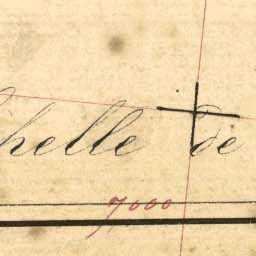 chelle de
7000